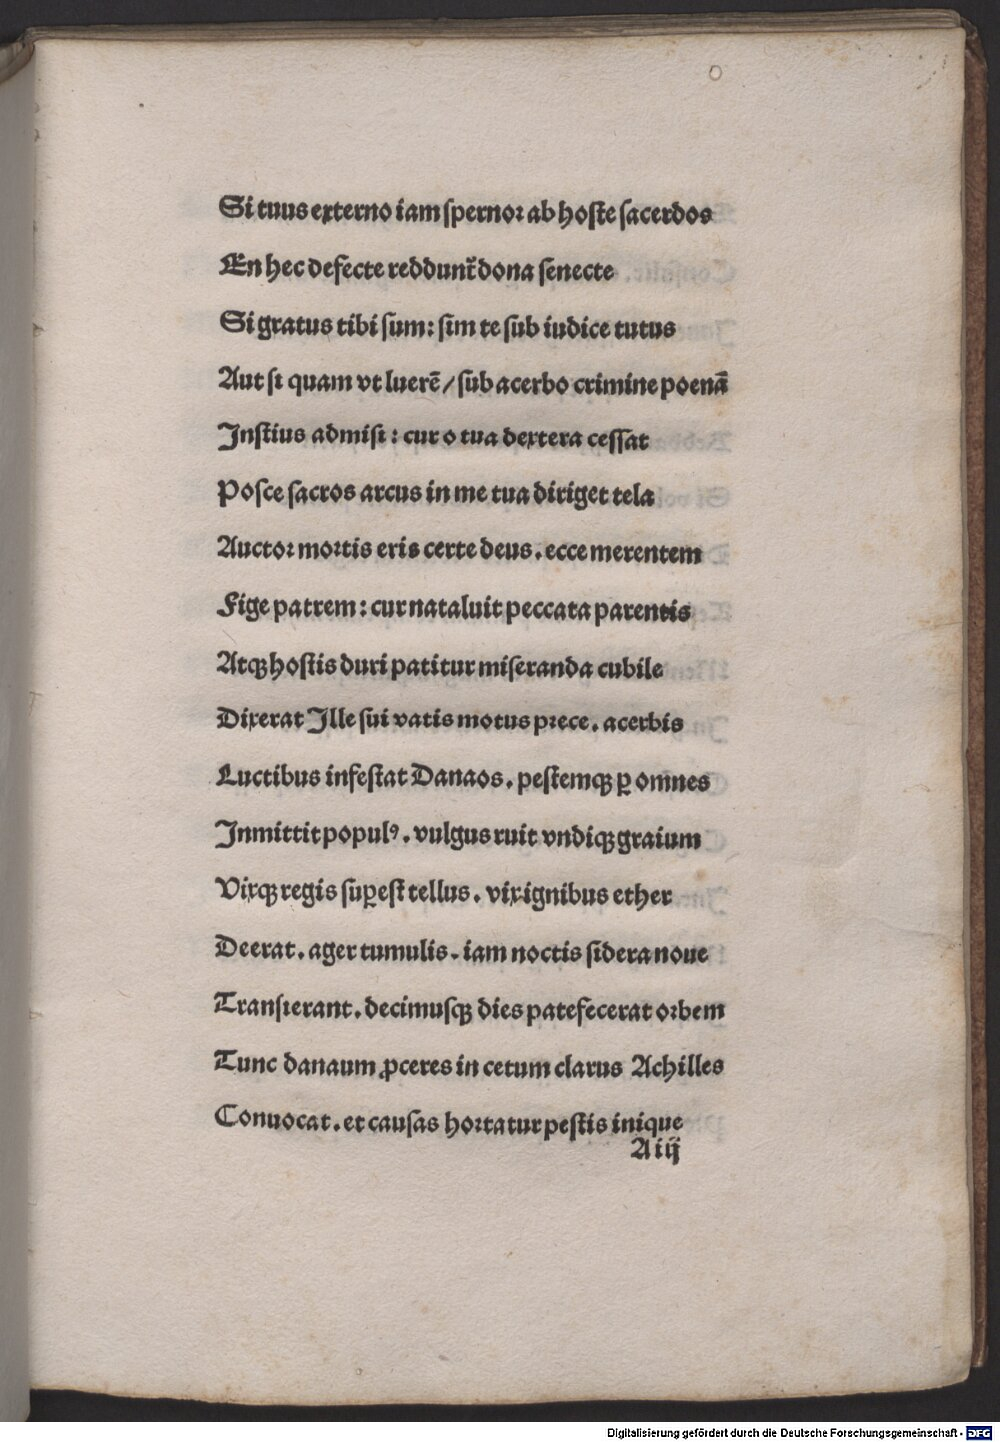 Si tuus externo iam ſpernoꝛ ab hoſte ſacerdos
En hec defecte reddunt᷑ dona ſenecte
Si gratus tibi ſum: ſim te ſub iudice tutus
Aut ſi quam vt luerē / ſub acerbo crimine poenā
Inſtius admiſi: cur o tua dextera ceſſat
Poſce ſacros arcus in me tua diriget tela
Auctoꝛ moꝛtis eris certe deus. ecce merentem
Fige patrem: cur nataluit peccata parentis
Atqꝫ hoſtis duri patitur miſeranda cubile
Dixerat Ille ſui vatis motus pꝛece. acerbis
Luctibus infeſtat Danaos. peſtemqꝫ ꝑ omnes
Inmittit populꝰ. vulgus ruit vndiqꝫ graium
Vixqꝫ regis ſuꝑeſt tellus. vix ignibus ether
Deerat. ager tumulis. iam noctis ſidera noue
Tranſierant. decimuſqꝫ dies patefecerat oꝛbem
Tunc danaum ꝓceres in cetum clarus Achilles
Conuocat. et cauſas hoꝛtatur peſtis inique
A iij
Digitalisierung gefördert durch die Deutsche Forschungsgemeinschaft - DFG